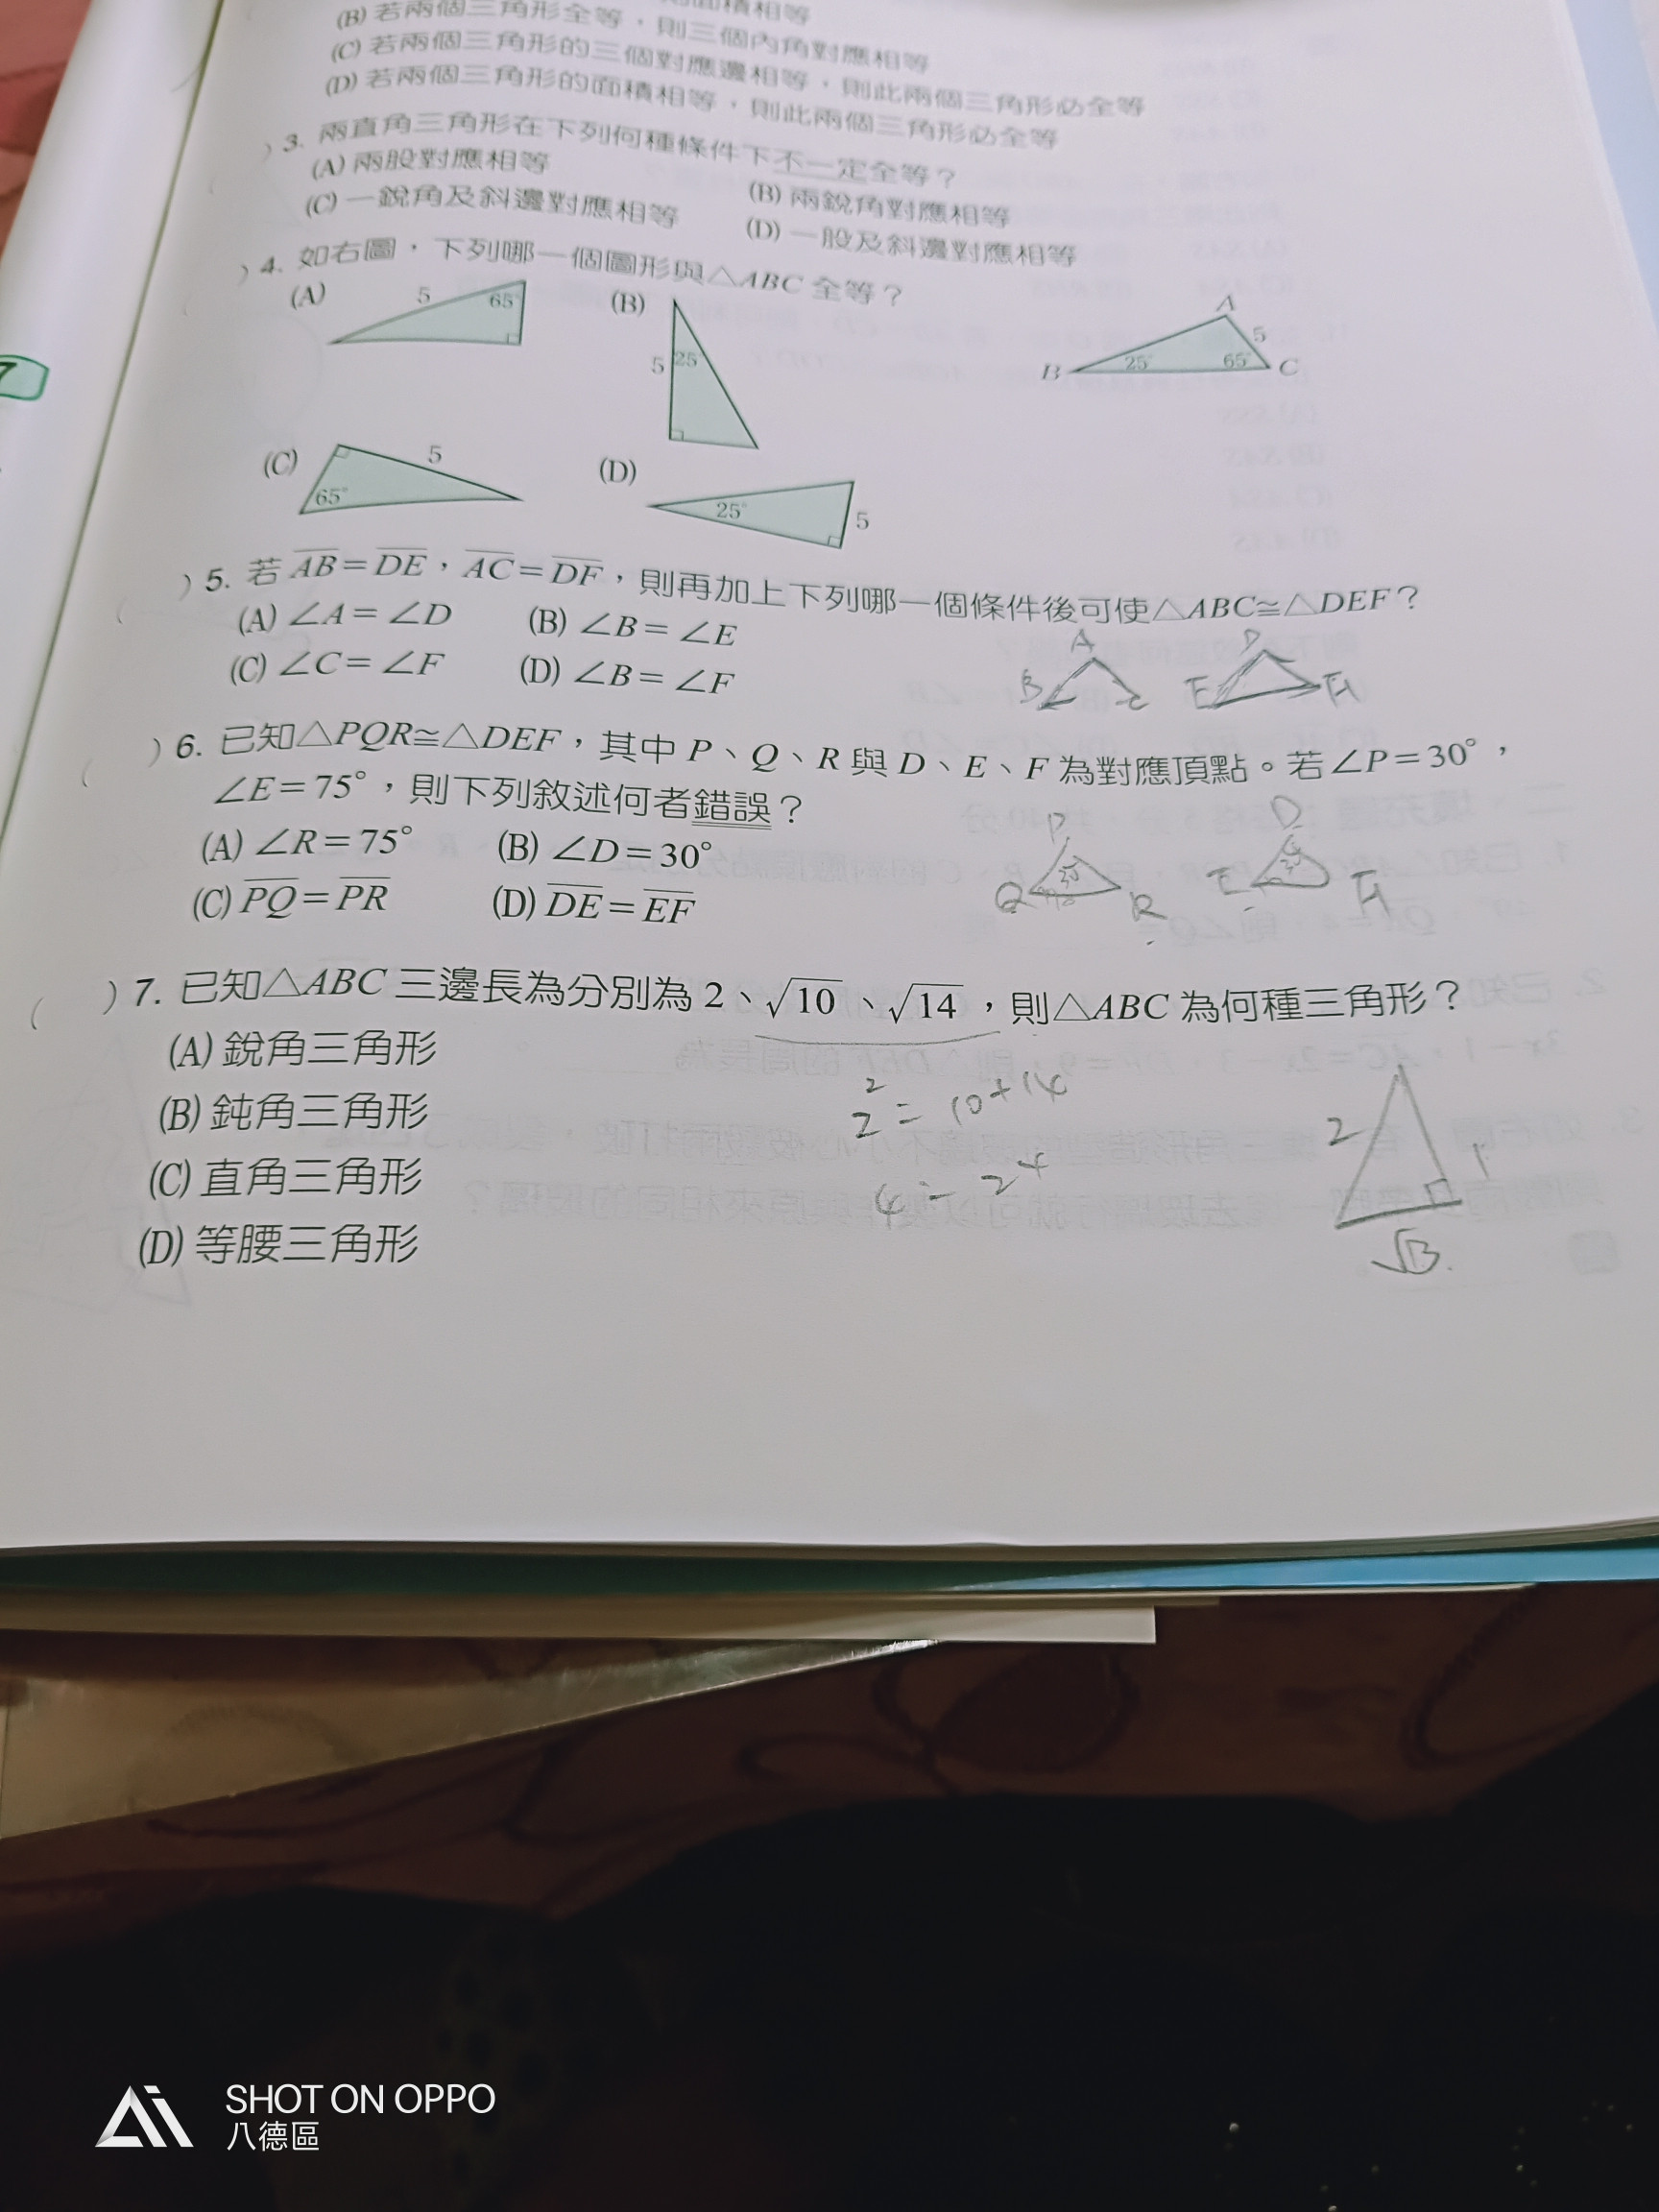 面積相等
(B) 若兩個三角形全等，則三個內角對應相等
(C) 若兩個三角形的三個對應邊相等，則此兩個三角形必全等
(D) 若兩個三角形的面積相等，則此兩個三角形必全等
) 3. 兩直角三角形在下列何種條件下不一定全等？
(A) 兩股對應相等 (B) 兩銳角對應相等
(C) 一銳角及斜邊對應相等 (D) 一股及斜邊對應相等
) 4. 如右圖，下列哪一個圖形與△ABC 全等？
(A) 5 65° (B) 5 25°
A 5 B 25° 65° C
(C) 5 65° (D) 25° 5
( ) 5. 若 AB＝DE，AC＝DF，則再加上下列哪一個條件後可使△ABC≅△DEF？
(A) ∠A＝∠D (B) ∠B＝∠E
(C) ∠C＝∠F (D) ∠B＝∠F
A B C D E F
( ) 6. 已知△PQR≅△DEF，其中 P、Q、R 與 D、E、F 為對應頂點。若∠P＝30°，
∠E＝75°，則下列敘述何者錯誤？
(A) ∠R＝75° (B) ∠D＝30°
(C) PQ＝PR (D) DE＝EF
P Q R D E F
( ) 7. 已知△ABC 三邊長為分別為 2、√10、√14，則△ABC 為何種三角形？
(A) 銳角三角形
(B) 鈍角三角形
(C) 直角三角形
(D) 等腰三角形
2² = 10+14
4 = 24
2
SHOT ON OPPO
八德區